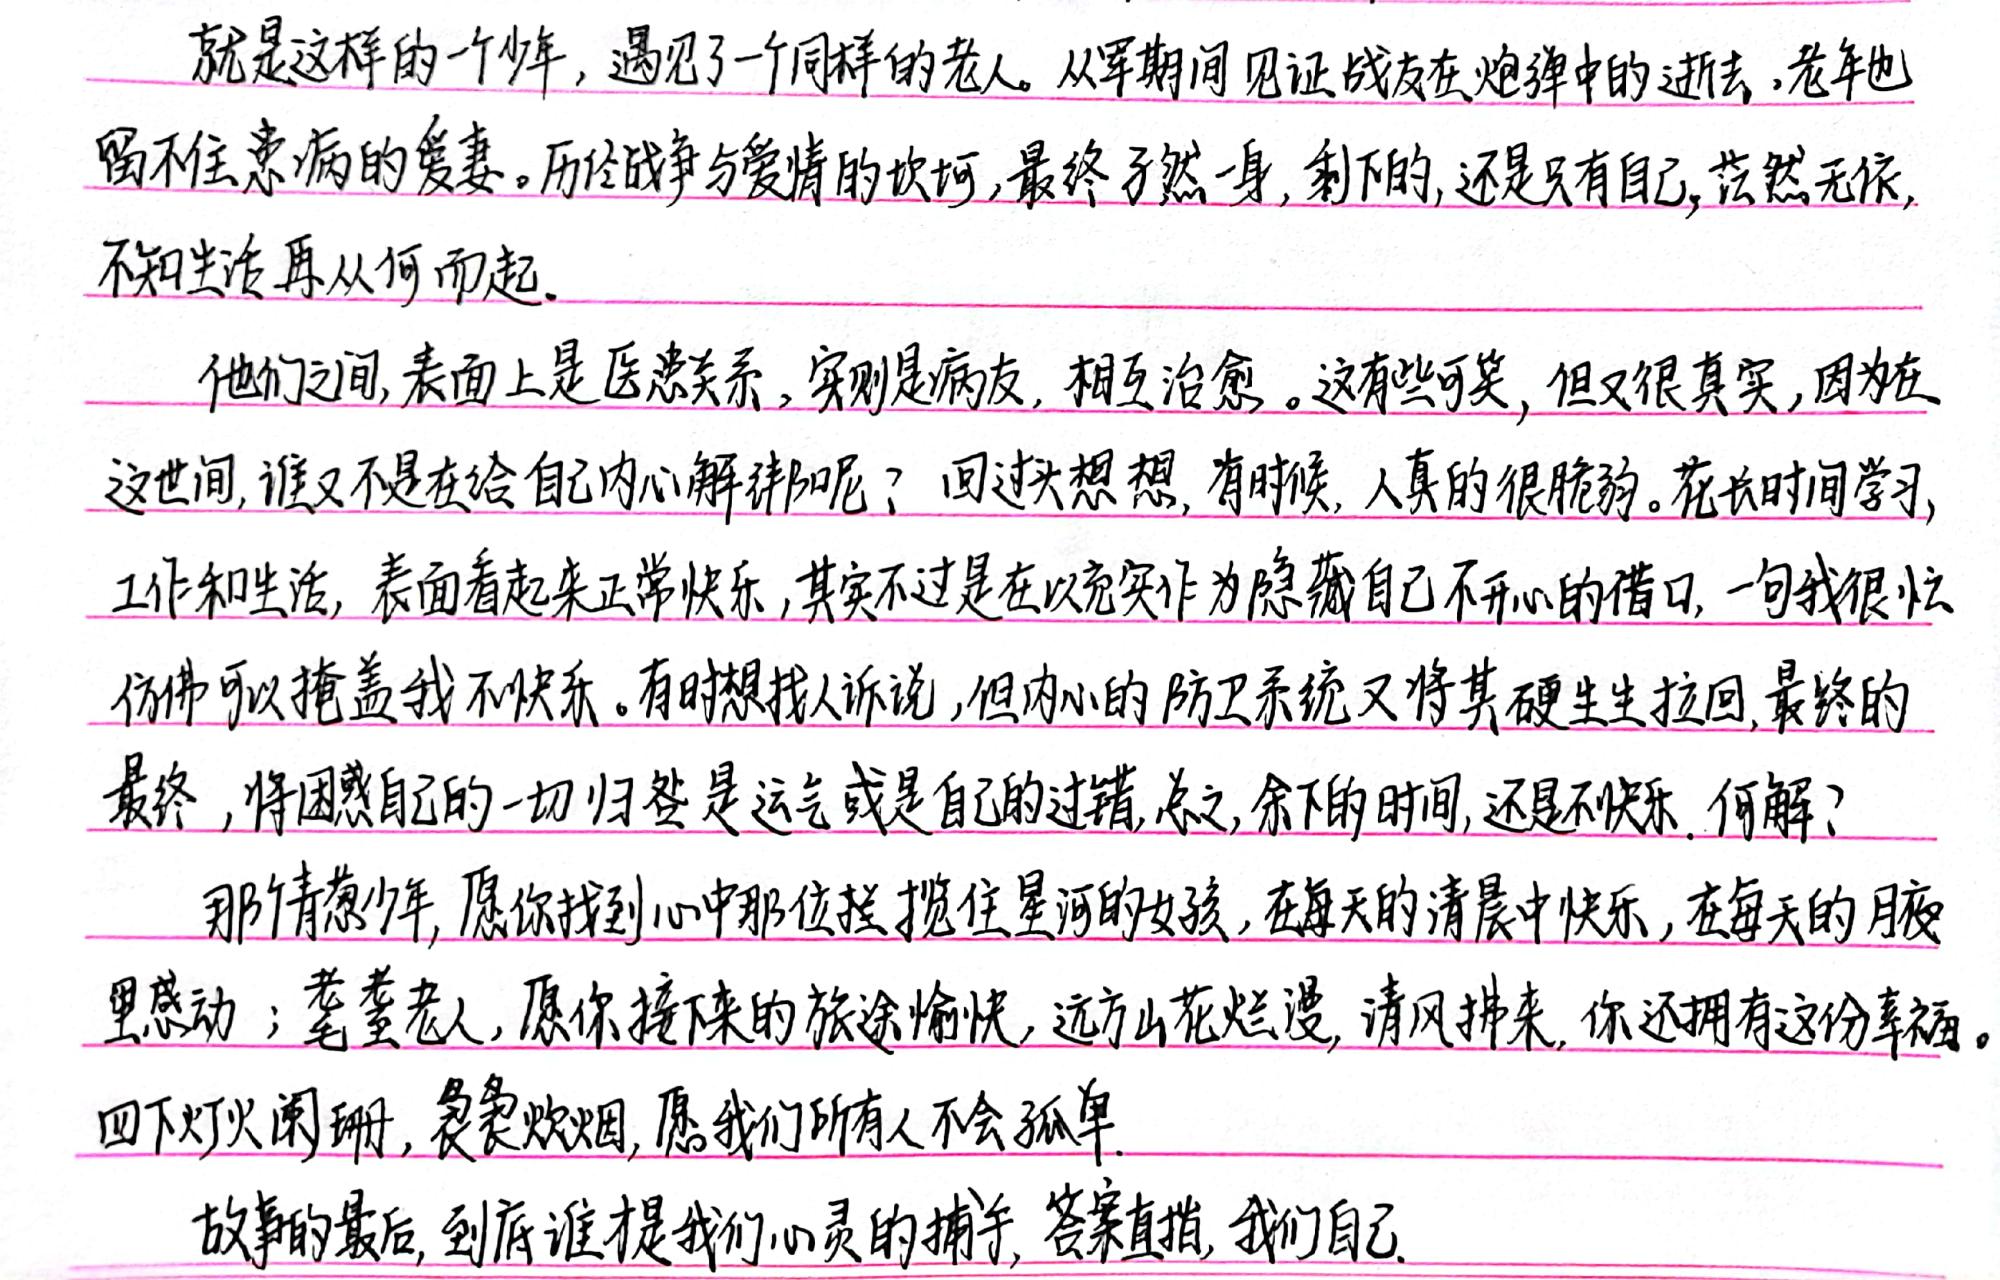 就是这样的一个少年，遇见了一个同样的老人。从军期间见证战友在炮弹中的逝去，老年也
留不住患病的爱妻。历经战争与爱情的坎坷，最终孑然一身，剩下的，还是只有自己，茫然无依，
不知生活再从何而起.
他们之间，表面上是医患关系，实则是病友，相互治愈。这有些可笑，但又很真实，因为在
这世间，谁又不是在给自己内心解绑呢？回过头想想，有时候，人真的很脆弱。花长时间学习，
工作和生活，表面看起来正常快乐，其实不过是在以充实作为隐藏自己不开心的借口，一句我很忙
仿佛可以掩盖我不快乐。有时想找人诉说，但内心的防卫系统又将其硬生生拉回，最终的
最终，将困惑自己的一切归咎是运气或是自己的过错，总之，余下的时间，还是不快乐.何解？
那个青葱少年，愿你找到心中那位拦揽住星河的女孩，在每天的清晨中快乐，在每天的月夜
里感动；耄耋老人，愿你接下来的旅途愉快，远方山花烂漫，清风拂来，你还拥有这份幸福。
四下灯火阑珊，袅袅炊烟，愿我们所有人不会孤单.
故事的最后，到底谁才是我们心灵的捕手，答案直指，我们自己.